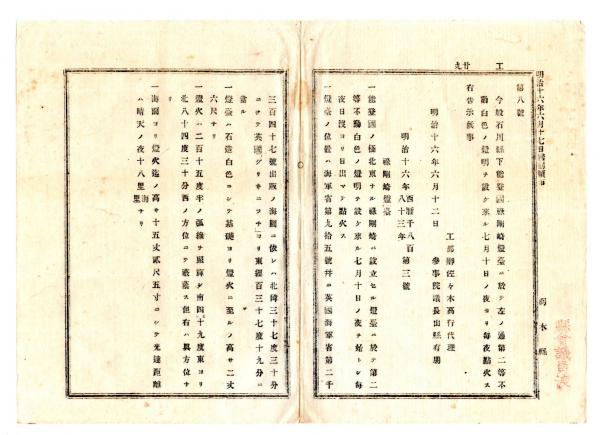 工 廿九
第八號
今般石川縣下能登國祿剛崎燈臺ニ於テ左ノ通第二等不
動白色ノ燈明ヲ設ケ來ル七月十日ノ夜ヨリ每夜點火ス
右告示候事
明治十六年六月十二日
工部卿佐々木高行代理
參事院議長山縣有朋
明治十六年 西曆千八百八十三年 第三號
祿剛崎燈臺
一能登國ノ極北東ナル祿剛崎ニ設立セル燈臺ニ於テ第二
等不動白色ノ燈明ヲ設ケ來ル七月十日ノ夜ヲ始トシ每
夜日沒ヨリ日出マテ點火ス
一燈臺ノ位置ハ海軍省第九拾五號幷ニ英國海軍省第二千
三百四十七號出版ノ海圖ニ依レハ北緯三十七度三十分
ニシテ英國グリキニツチヨリ東經百三十七度十九分ニ
當ル
一燈臺ハ石造白色ニシテ基礎ヨリ燈火ニ至ルノ高サ二丈
六尺ナリ
一燈火ハ二百十五度半ノ弧線ヲ照輝シ南四十九度東ヨリ
北八十四度三十分西ノ方位ニテ蔽蓋ス但右ハ眞方位ナ
リ
一海面ヨリ燈火迄ノ高サ十五丈貳尺五寸ニシテ光達距離
ハ晴天ノ夜十八里 海里 ナリ
明治十六年六月十七日
栃木縣